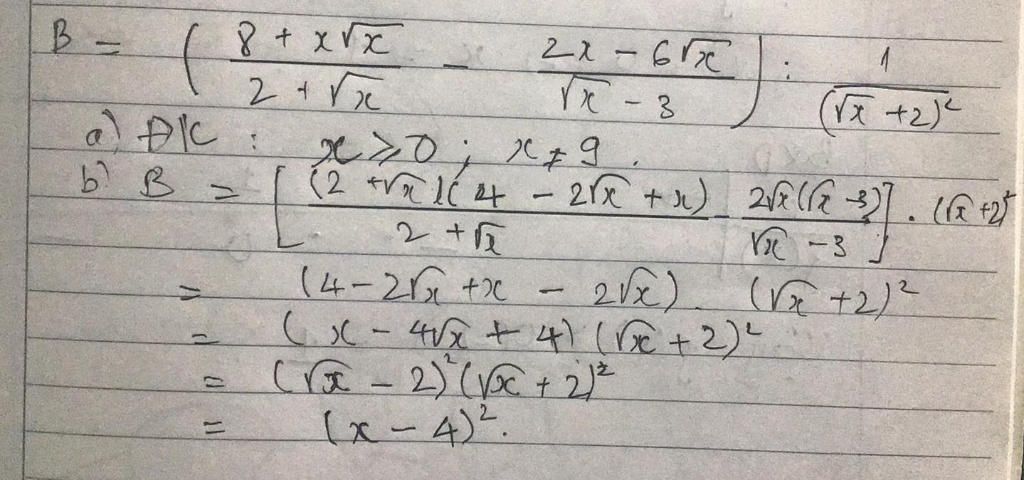 B = ( (8 + x√x)/(2 + √x) - (2x - 6√x)/(√x - 3) ) : 1/(√x + 2)²
a) ĐK : x ⩾ 0 ; x ≠ 9 .
b) B = [ (2 + √x)(4 - 2√x + x)/(2 + √x) - 2√x(√x - 3)/(√x - 3) ] . (√x + 2)²
= (4 - 2√x + x - 2√x) . (√x + 2)²
= (x - 4√x + 4) (√x + 2)²
= (√x - 2)² (√x + 2)²
= (x - 4)² .